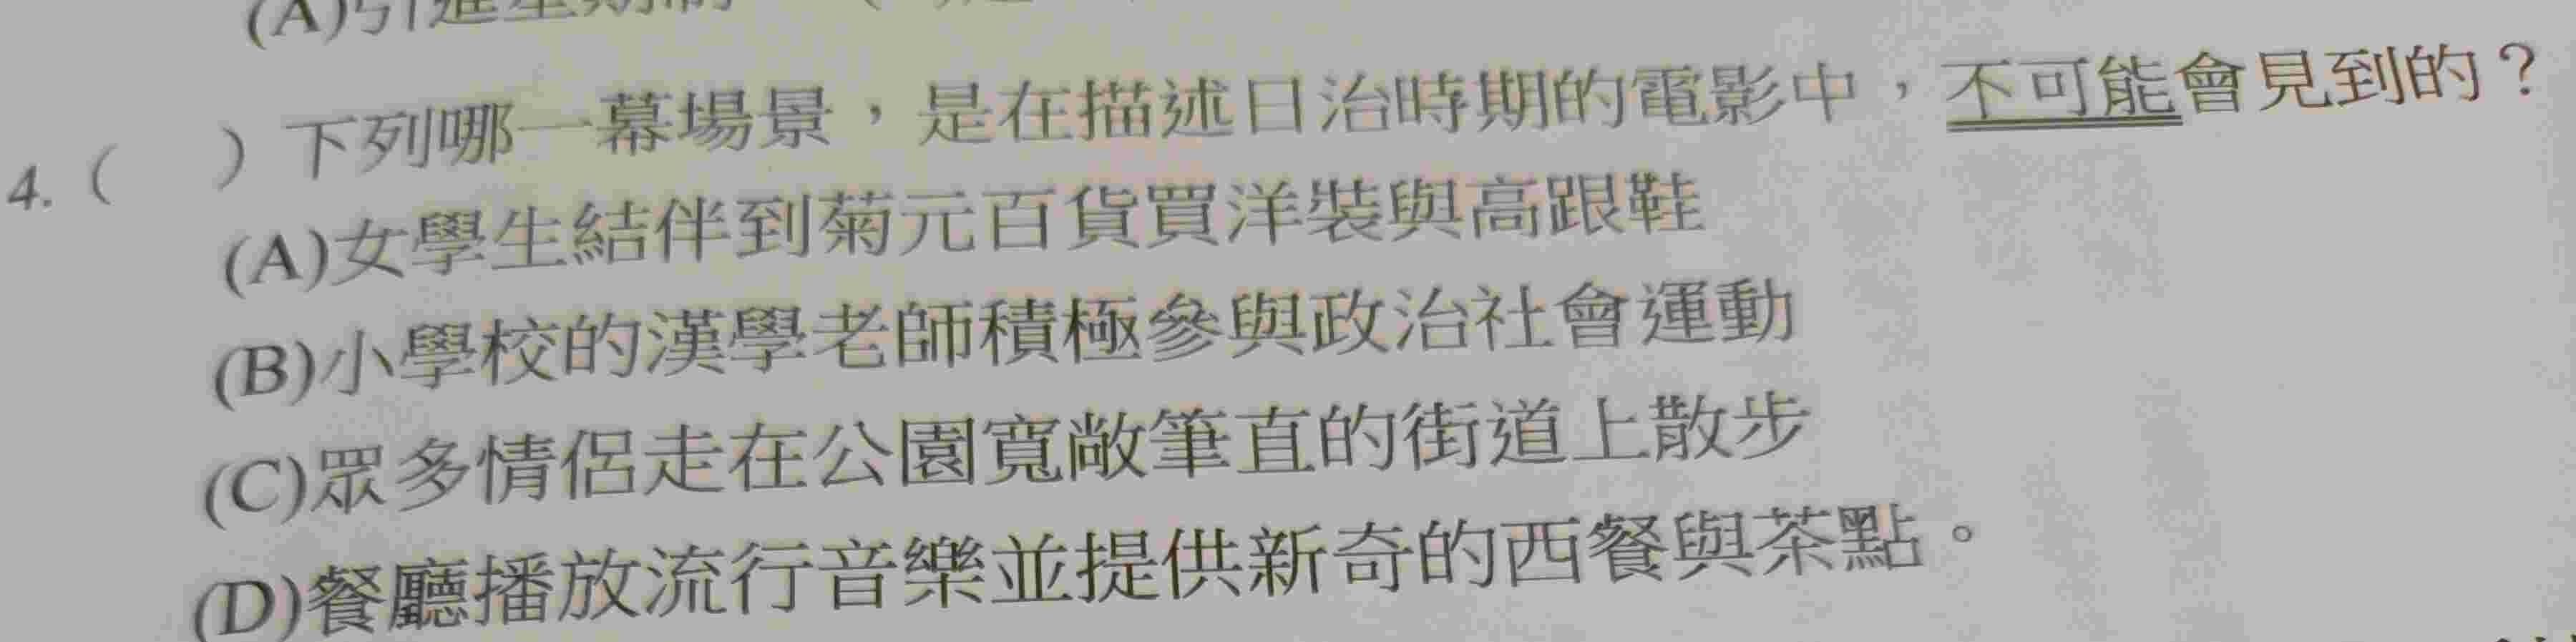 (A)引進星期制
4.(　)下列哪一幕場景，是在描述日治時期的電影中，不可能會見到的？
(A)女學生結伴到菊元百貨買洋裝與高跟鞋
(B)小學校的漢學老師積極參與政治社會運動
(C)眾多情侶走在公園寬敞筆直的街道上散步
(D)餐廳播放流行音樂並提供新奇的西餐與茶點。